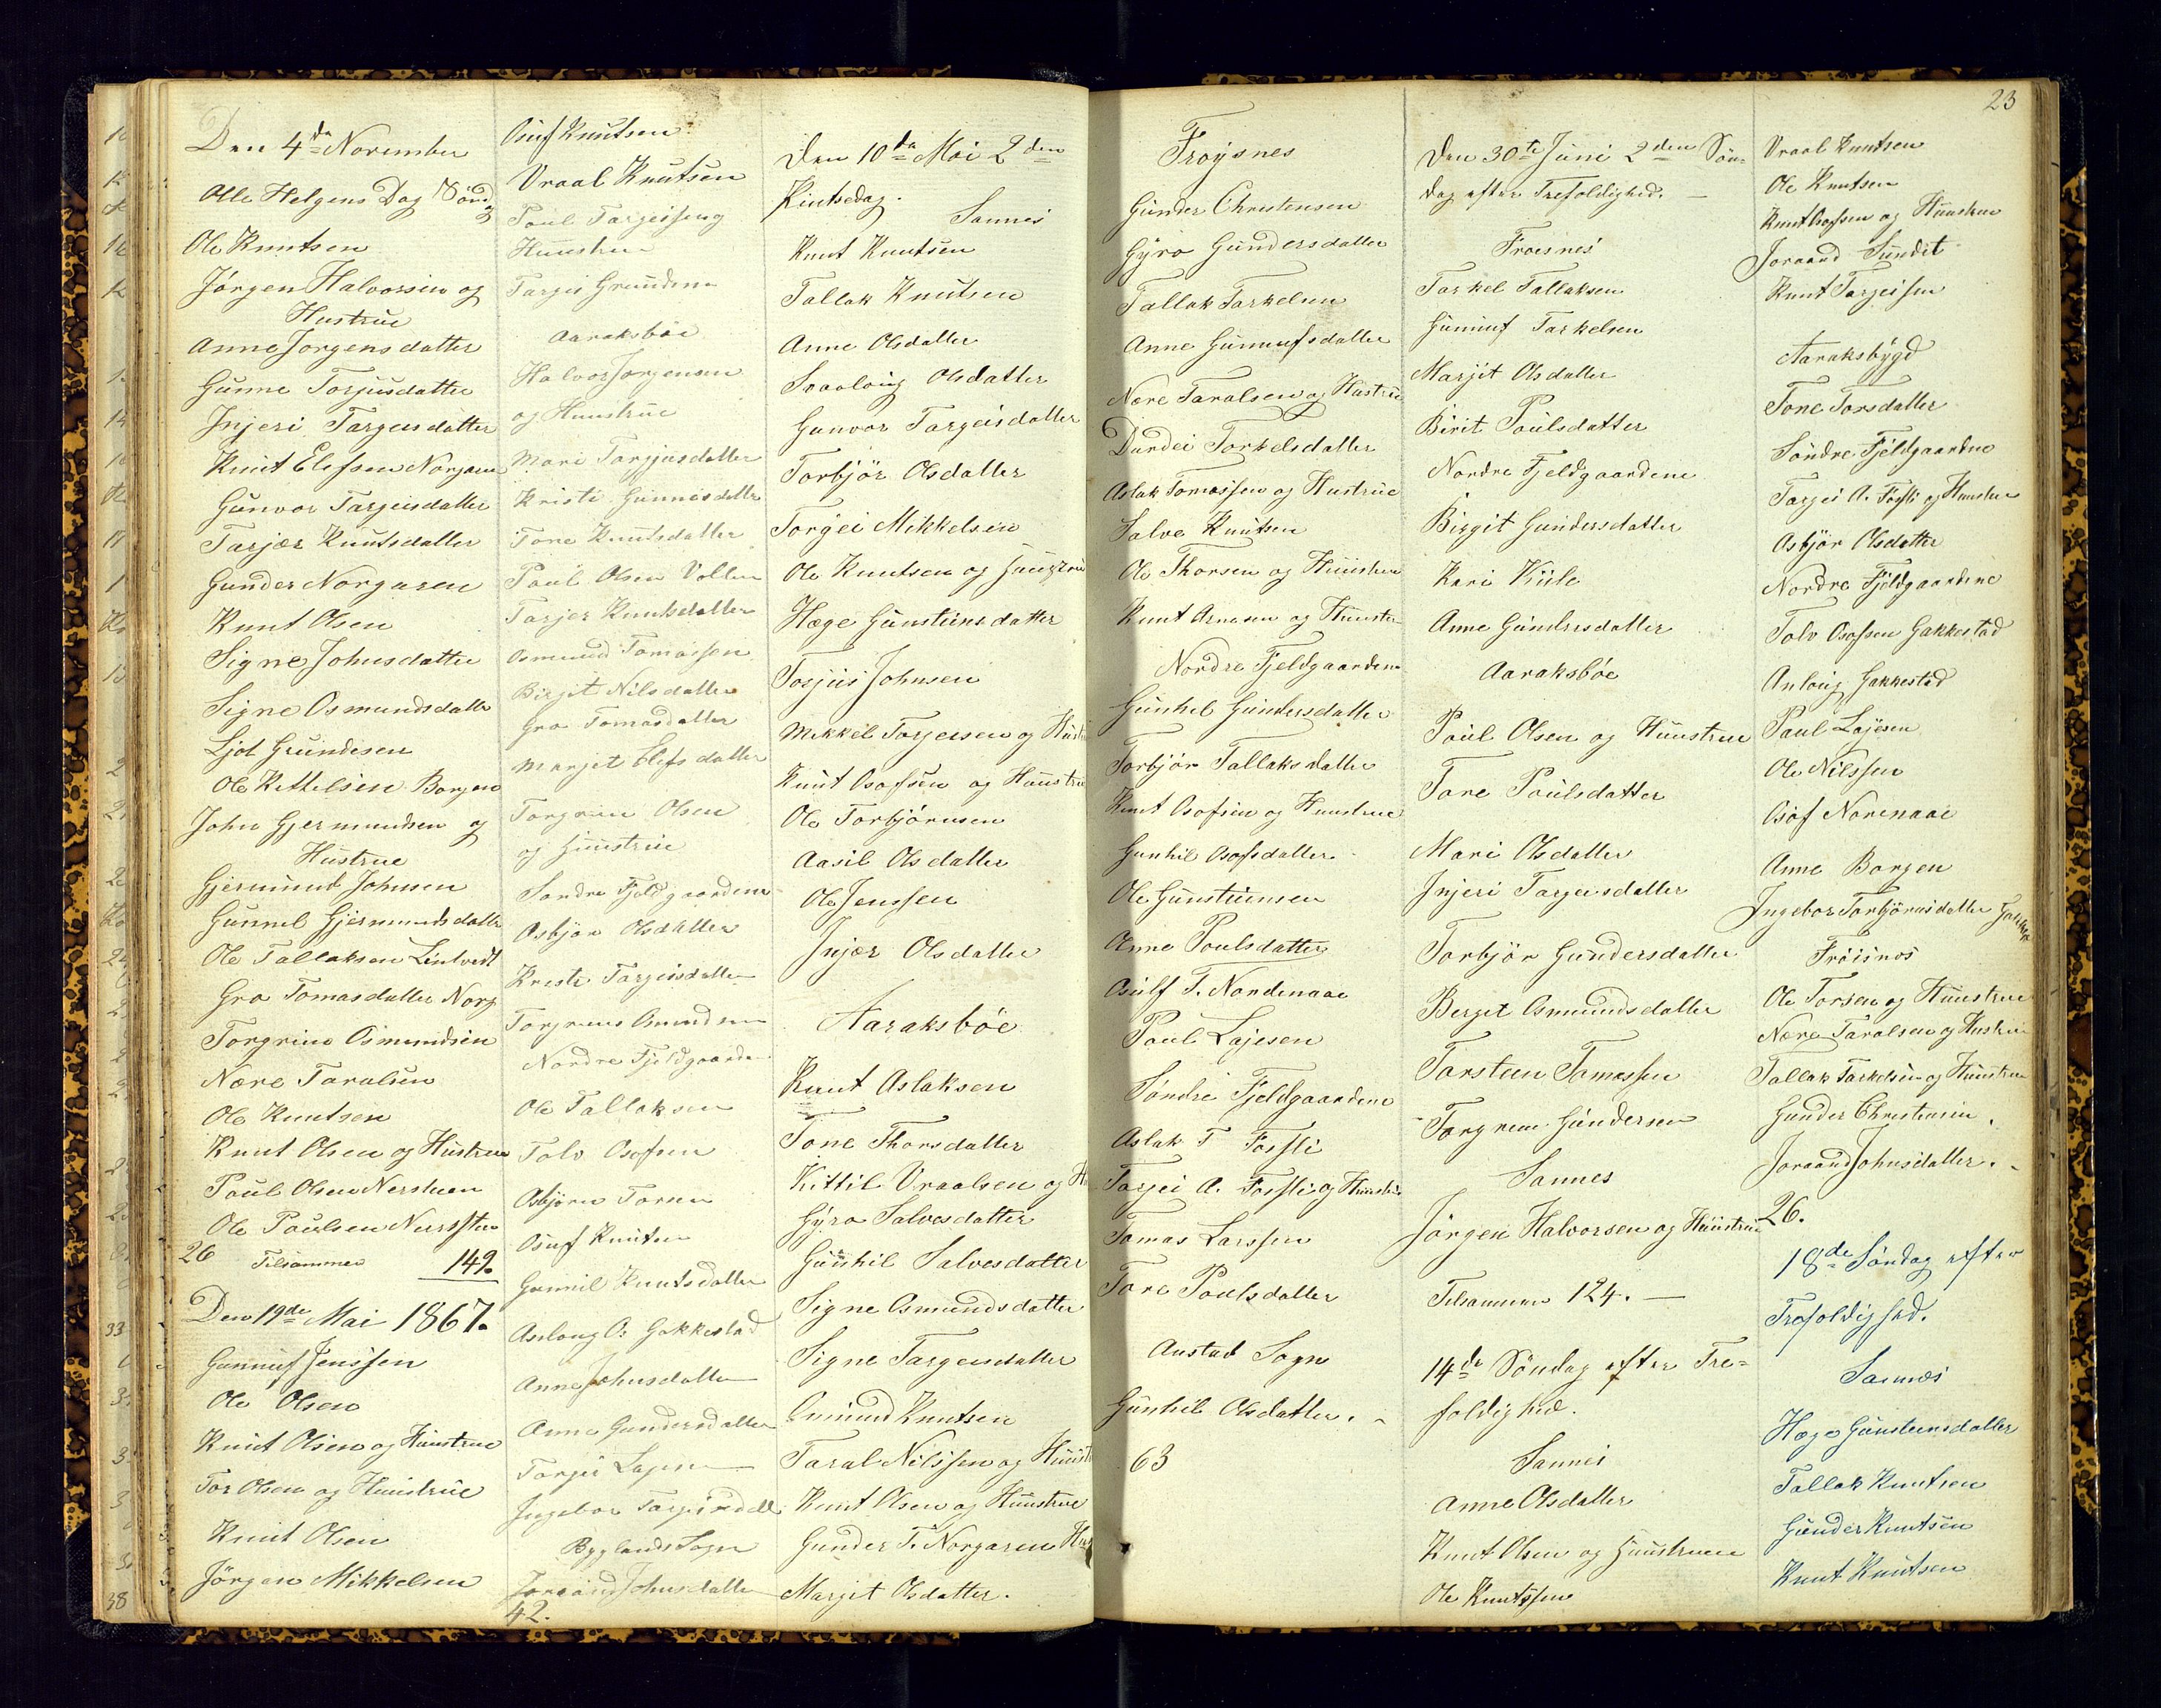 Den 4de November
Alle Helgens Dag Sönd
Ole Knutsen
Jörgen Halvorsen og
Hustrue
Anne Jorgensdatter
Gunne Torjusdatter
Injeri Targeisdatter
Knut Elefsen Norgaren
Gunvor Targeisdatter
Tarjær Knutsdatter
Gunder Norgaren
Knut Olsen
Signe Johnsdatter
Signe Osmundsdatte
Ljot Grundesen
Ole Kettelsen Borgen
John Gjermundsen og
Hustrue
Gjermund Johnsen
Gunnel Gjermundsdatte
Ole Tallaksen Lintvedt
Gro Tomasdatter Norg
Torgrim Osmundsen
Nære Taralsen
Ole Knutsen
Knut Olsen og Hustrue
Poul Olsen Nersteen
Ole Poulsen Nerssteen
26 Tilsammen 149.
Den 19de Mai 1867.
Gunnuf Jenssen
Ole Olsen
Knut Olsen og Huustrue
Tor Olsen og Huustrue
Knut Olsen
Jörgen Mikkelsen
Osuf Knutsen
Vraal Knutsen
Poul Targeissen og
Huustrue
Targei Grundesen
Aaraksböe
Halvor Jorgensen
og Huustrue
Mari Torjusdatter
Kristi Gunnesdatter
Tone Knutsdatter
Poul Olsen Vollen
Tarjer Knutsdatter
Osmund Tomassen
Birgit Nilsdatter
Gro Tomasdatter
Margit Elefsdatter
Torgrim Olsen
og Huustrue
Søndre Fjeldgaardene
Asbjør Olsdatter
Kreste Targeisdatter
Torgrim Osmundsen
Nordre Fjeldgaarden
Ole Tallaksen
Tolv Osofsen
Asbjörn Torsen
Osuf Knutsen
Gunnil Knutsdatter
Aslaug O. Gakkestad
Anne Johnsdatter
Anne Gundersdatter
Torjus Lajesen
Ingebor Targeisdatt
Byglands Sogn
Joraand Johnsdatter
42.
Den 10de Mai 2den
Pintsedag.
Sannes
Knut Knutsen
Tallak Knutsen
Anne Olsdatter
Svaloug Olsdatter
Gunvor Targeisdatter
Torbjør Olsdatter
Torgei Mikkelsen
Ole Knutsen og Huustrue
Hæge Gunsteinsdatter
Torjus Johnsen
Mekkel Torjersen og Hust
Knut Osofsen og Huustrue
Ole Torbjörnsen
Aasil Olsdatter
Ole Jenssen
Injær Olsdatter
Aaraksböe
Knut Aslaksen
Tone Thorsdatter
Kittil Vraalsen og H
Gyro Salvesdatter
Gunhil Salvesdatter
Signe Osmundsdatter
Signe Targeisdatter
Osmund Knutsen
Taral Nilssen og Huust
Knut Olsen og Huustrue
Gunder T. Norgaren Hus
Margit Olsdatter.
23
Froysnes
Gunder Christensen
Gyro Gundersdatter
Tallak Tarkelsen
Anne Gunnufsdatter
Nære Taralsen og Hustrue
Durdei Torkelsdatter
Aslak Tomassen og Hustrue
Salve Knutsen
Ole Thorsen og Huustrue
Knut Arnesen og Huustr
Nordre Fjeldgaardene
Gunhil Gundersdatter
Torbjör Tallaksdatter
Knut Osofsen og Huustrue
Gunhil Osofsdatter
Ole Gunsteinsen
Anne Poulsdatter
Osulf T. Nordenaae
Poul Lajesen
Söndre Fjeldgaardene
Aslak T Fossli
Torjei A. Fossli og Huustrue
Tomas Larssen
Tore Poulsdatter
Austad Sogn
Gunhil Olsdatter.
63
Den 30te Juni 2den Sön-
dag efter Trefoldighed.
Froisnes
Tarkel Tallaksen
Gunnuf Tarkelsen
Marjit Olsdatter
Birit Poulsdatter
Nordre Fjeldgaardene
Birgit Gundersdatter
Kari Kiile
Anne Gundersdatter
Aaraksböe
Poul Olsen og Huustrue
Tore Poulsdatter
Mari Olsdatter
Injeri Targeisdatter
Torbjör Gundersdatter
Berget Osmundsdatter
Tarsteen Tomassen
Torgrem Gundersen
Sannes
Jörgen Halvorsen og Huustrue
Tilsammen 124.
14de Söndag efter Tre-
foldighed.
Sannes
Anne Olsdatter
Knut Olsen og Huustruen
Ole Knutssen
Vraal Knutsen
Ole Knutsen
Knut Osofsen og Huustrue
Joraand Sundet
Knut Targeissen
Aaraksbygd
Tone Torsdatter
Söndre Fjeldgaardne
Targei A. Fossli og Huustrue
Asbjör Olsdatter
Nordre Fjeldgaardene
Tolv Osofsen Gakkestad
Anloug Gakkestad
Paul Lajesen
Ole Nilssen
Osof Norenaae
Anne Borgen
Ingebor Torbjörnsdatter Gakkest
Fröisnes
Ole Torsen og Huustrue
Nære Taralsen og Hustrue
Tallak Tarkelsen og Huustrue
Gunder Christensen
Joraand Johnsdatter.
26.
18de Söndag efter
Trefoldighed.
Sannes
Hæge Gunsteensdatter
Tallak Knutsen
Gunder Knutsen
Knut Knutsen